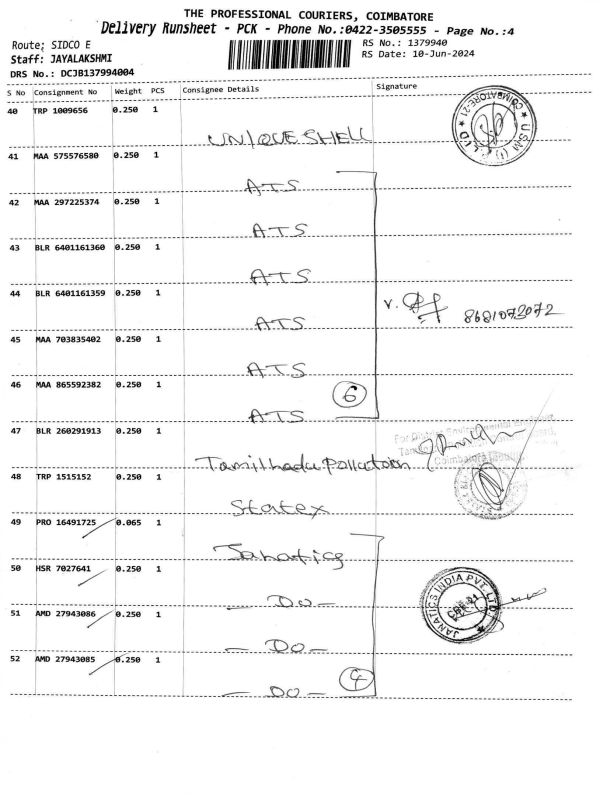 THE PROFESSIONAL COURIERS, COIMBATORE
Delivery Runsheet - PCK - Phone No.:0422-3505555 - Page No.:4
Route: SIDCO E
RS No.: 1379940
Staff: JAYALAKSHMI
RS Date: 10-Jun-2024
DRS No.: DCJB137994004
S No Consignment No Weight PCS Consignee Details Signature
40 TRP 1009656 0.250 1
UNIQUE SHELL
COIMBATORE-21 ★ USM (I) P LTD ★
41 MAA 575576580 0.250 1
ATS
42 MAA 297225374 0.250 1
ATS
43 BLR 6401161360 0.250 1
ATS
44 BLR 6401161359 0.250 1
ATS
8681073072
45 MAA 703835402 0.250 1
ATS
46 MAA 865592382 0.250 1
ATS
6
47 BLR 260291913 0.250 1
For District Environmental Engineer,
Tamilnadu Pollution
48 TRP 1515152 0.250 1
Statex
49 PRO 16491725 0.065 1
Janatics
50 HSR 7027641 0.250 1
— DO —
JANATICS INDIA PVT. LTD. ★
CBE-21
51 AMD 27943086 0.250 1
— DO —
52 AMD 27943085 0.250 1
— DO —
4